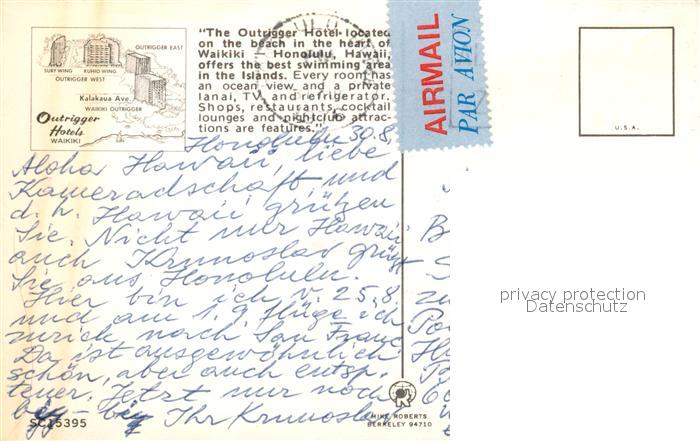 OUTRIGGER EAST
SURF WING KUHIO WING
OUTRIGGER WEST
Kalakaua Ave.
WAIKIKI OUTRIGGER
Outrigger
Hotels
WAIKIKI
"The Outrigger Hotel located
on the beach in the heart of
Waikiki - Honolulu, Hawaii,
offers the best swimming area
in the Islands. Every room has
an ocean view and a private
lanai, TV and refrigerator.
Shops, restaurants, cocktail
lounges and nightclub attrac-
tions are features."
AIRMAIL
PAR AVION
U.S.A.
Honolulu 30.8.
Aloha Hawaii, liebe
Kameradschaft, und
d. h. Hawaii grüßen
Sie. Nicht nur Hawaii
auch Krunoslav grüßt
Sie aus Honolulu.
Hier bin ich v. 25.8.
und am 1.9. flüge ich
zurück nach San Franc.
Da ist ausgewöhnlich
schön, aber auch entsp.
teuer. Jetzt nur noch
Ihr Krunoslav
privacy protection
Datenschutz
SC15395
MIKE ROBERTS
BERKELEY 94710